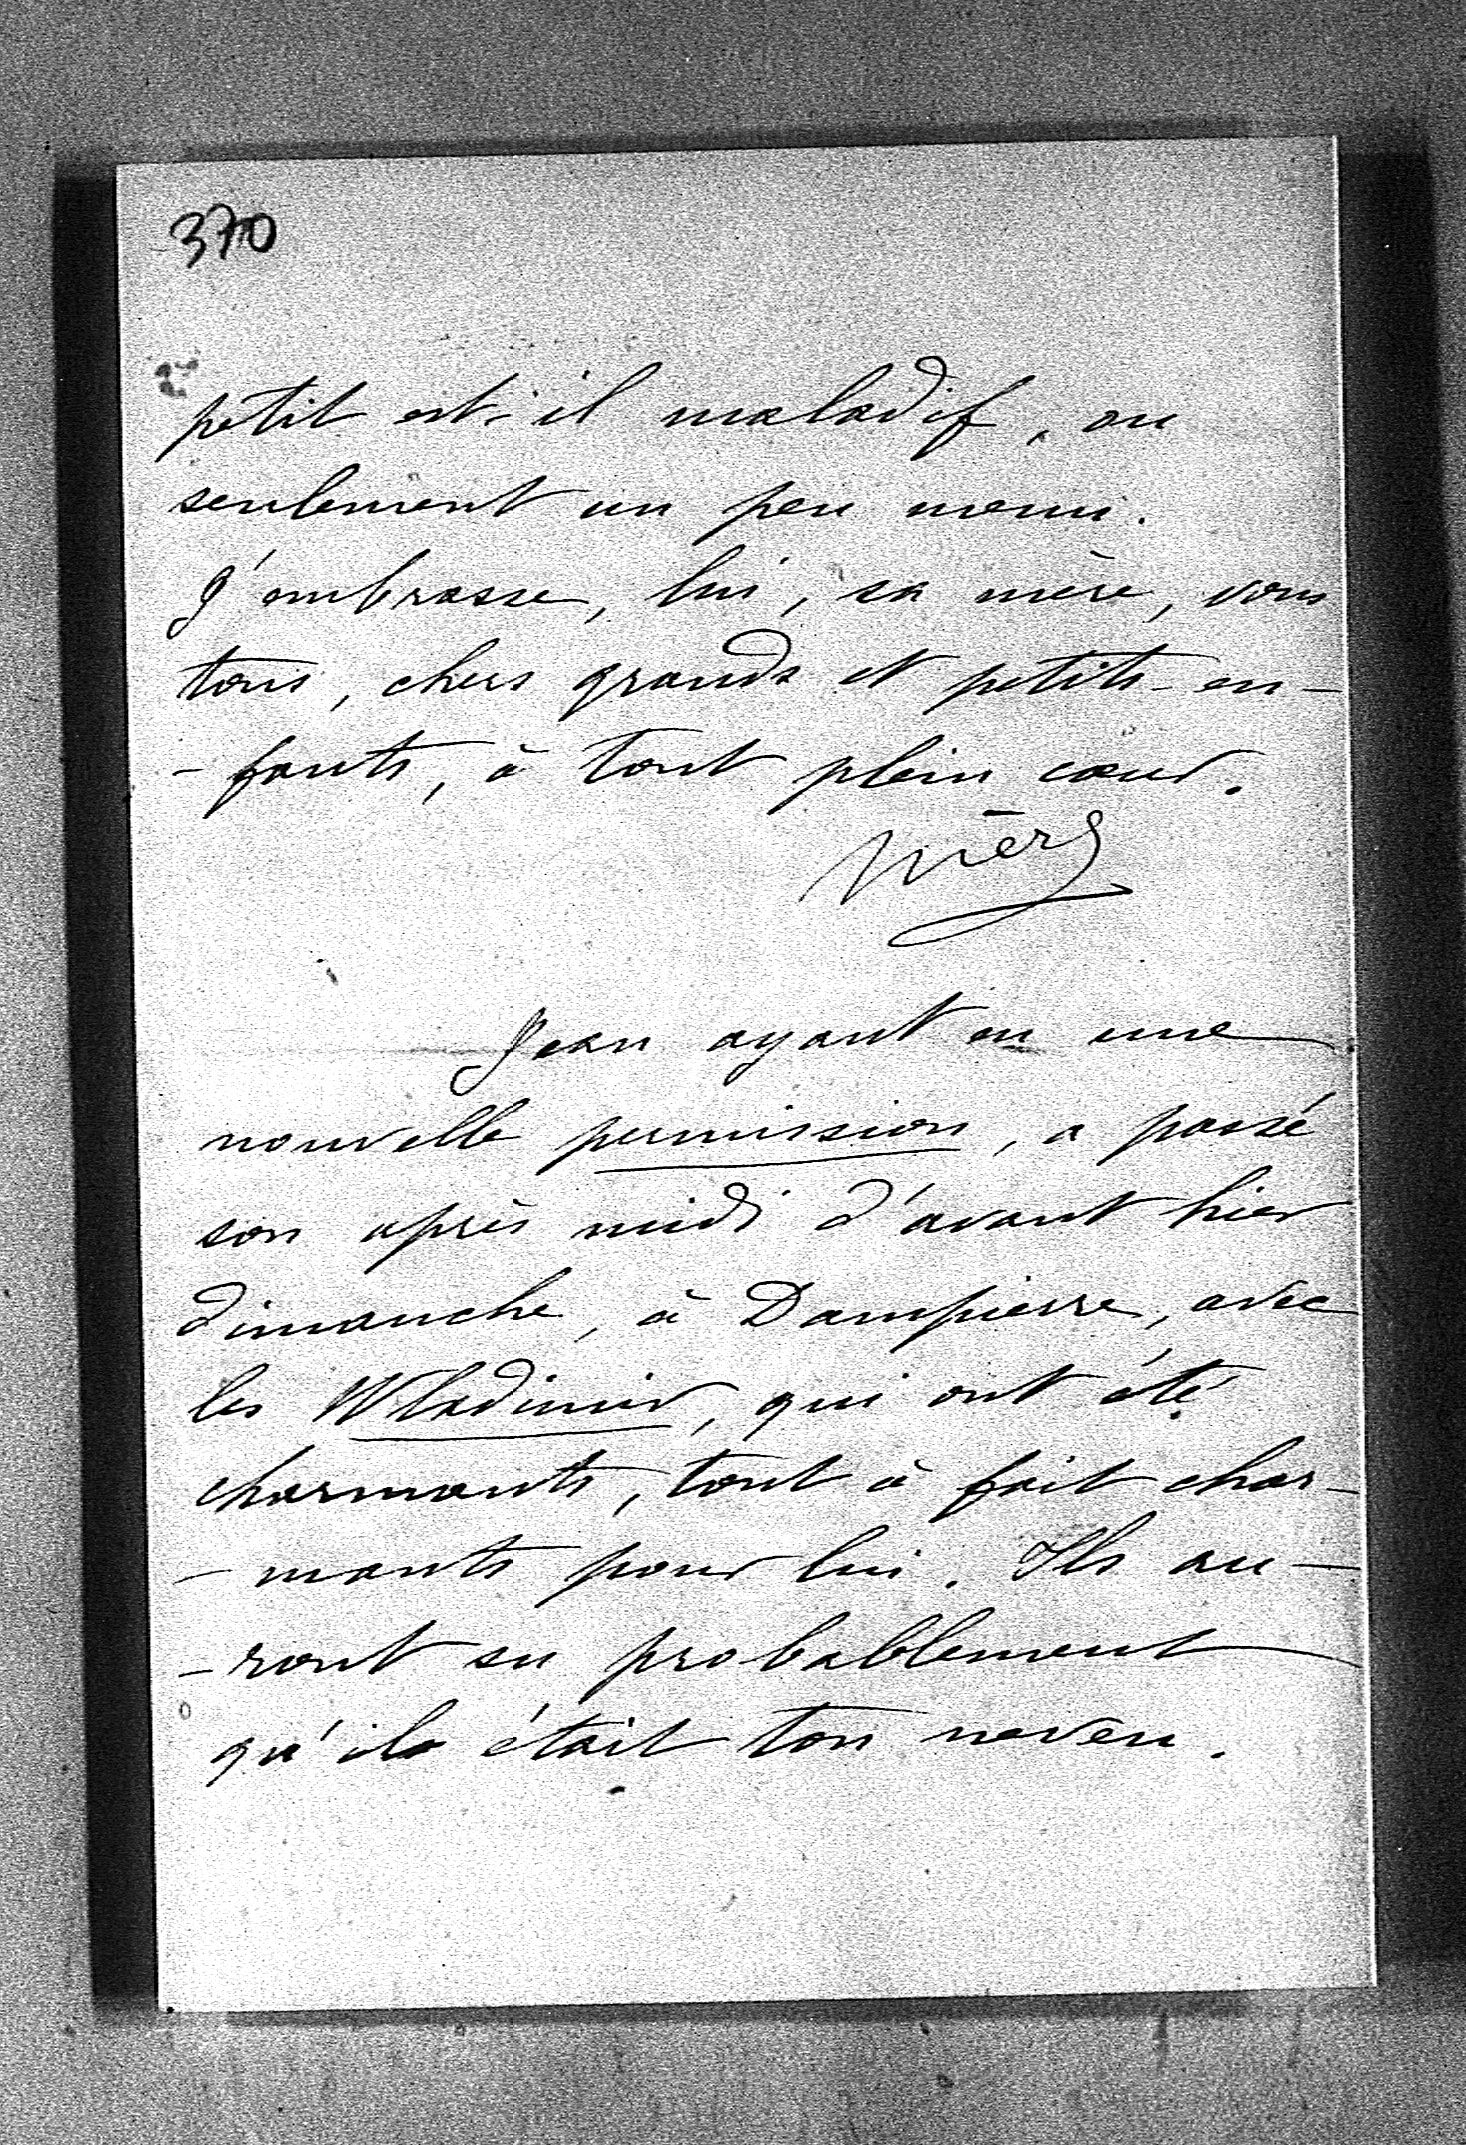 370
petit est-il maladif, ou
seulement un peu menu.
J'embrasse, lui, sa mère, vous
tous, chers grands et petits-en-
-fants, à tout plein cœur.
Mère
Jean ayant eu une
nouvelle permission, a passé
son après midi d'avant hier
dimanche, à Dampierre, avec
les Wladimir, qui ont été
charmants, tout à fait char-
-mants pour lui. Ils au-
-ront su probablement
qu'il était ton neveu.